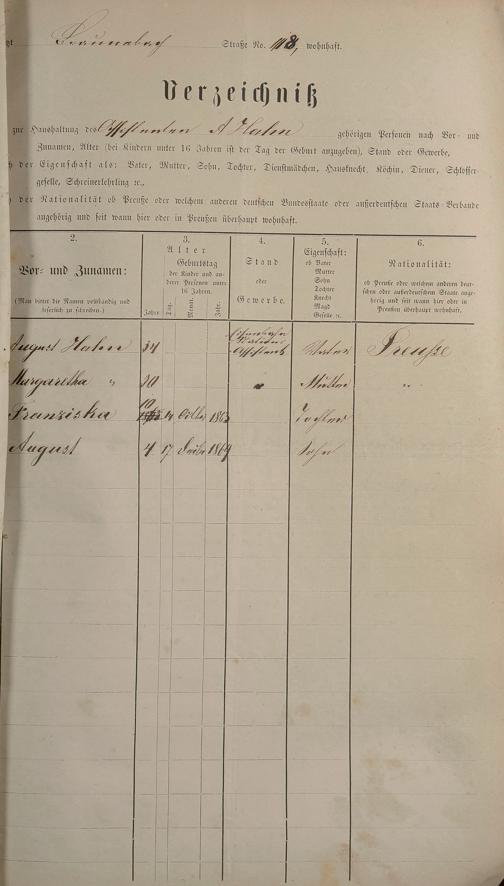 Straße No. 118, wohnhaft.
Verzeichniß
zur Haushaltung des Assistenten A Hahn gehörigen Personen nach Vor- und
Zunamen, Alter (bei Kindern unter 16 Jahren ist der Tag der Geburt anzugeben), Stand oder Gewerbe,
der Eigenschaft als: Vater, Mutter, Sohn, Tochter, Dienstmädchen, Hausknecht, Köchin, Diener, Schlosser-
geselle, Schreinerlehrling ꝛc.,
der Nationalität ob Preuße oder welchem anderen deutschen Bundesstaate oder außerdeutschen Staats-Verbande
angehörig und seit wann hier oder in Preußen überhaupt wohnhaft.
2.
Vor- und Zunamen:
(Man bittet die Namen vollständig und
leserlich zu schreiben.)
3.
Alter
Geburtstag
der Kinder und an-
derer Personen unter
16 Jahren.
Jahre
Tag.
Monat.
Jahr.
4.
Stand
oder
Gewerbe.
5.
Eigenschaft:
ob Vater
Mutter
Sohn
Tochter
Knecht
Magd
Geselle ꝛc.
6.
Nationalität:
ob Preuße oder welchem anderen deut-
schen oder außerdeutschem Staate ange-
hörig und seit wann hier oder in
Preußen überhaupt wohnhaft.
August Hahn 34 Eisenbahn Stations Assistent Vater Preuße
Margaretha " 30 " Mutter "
Franziska 10 14 Octbr 1863 Tochter
August 4 17 Debr 1869 Sohn